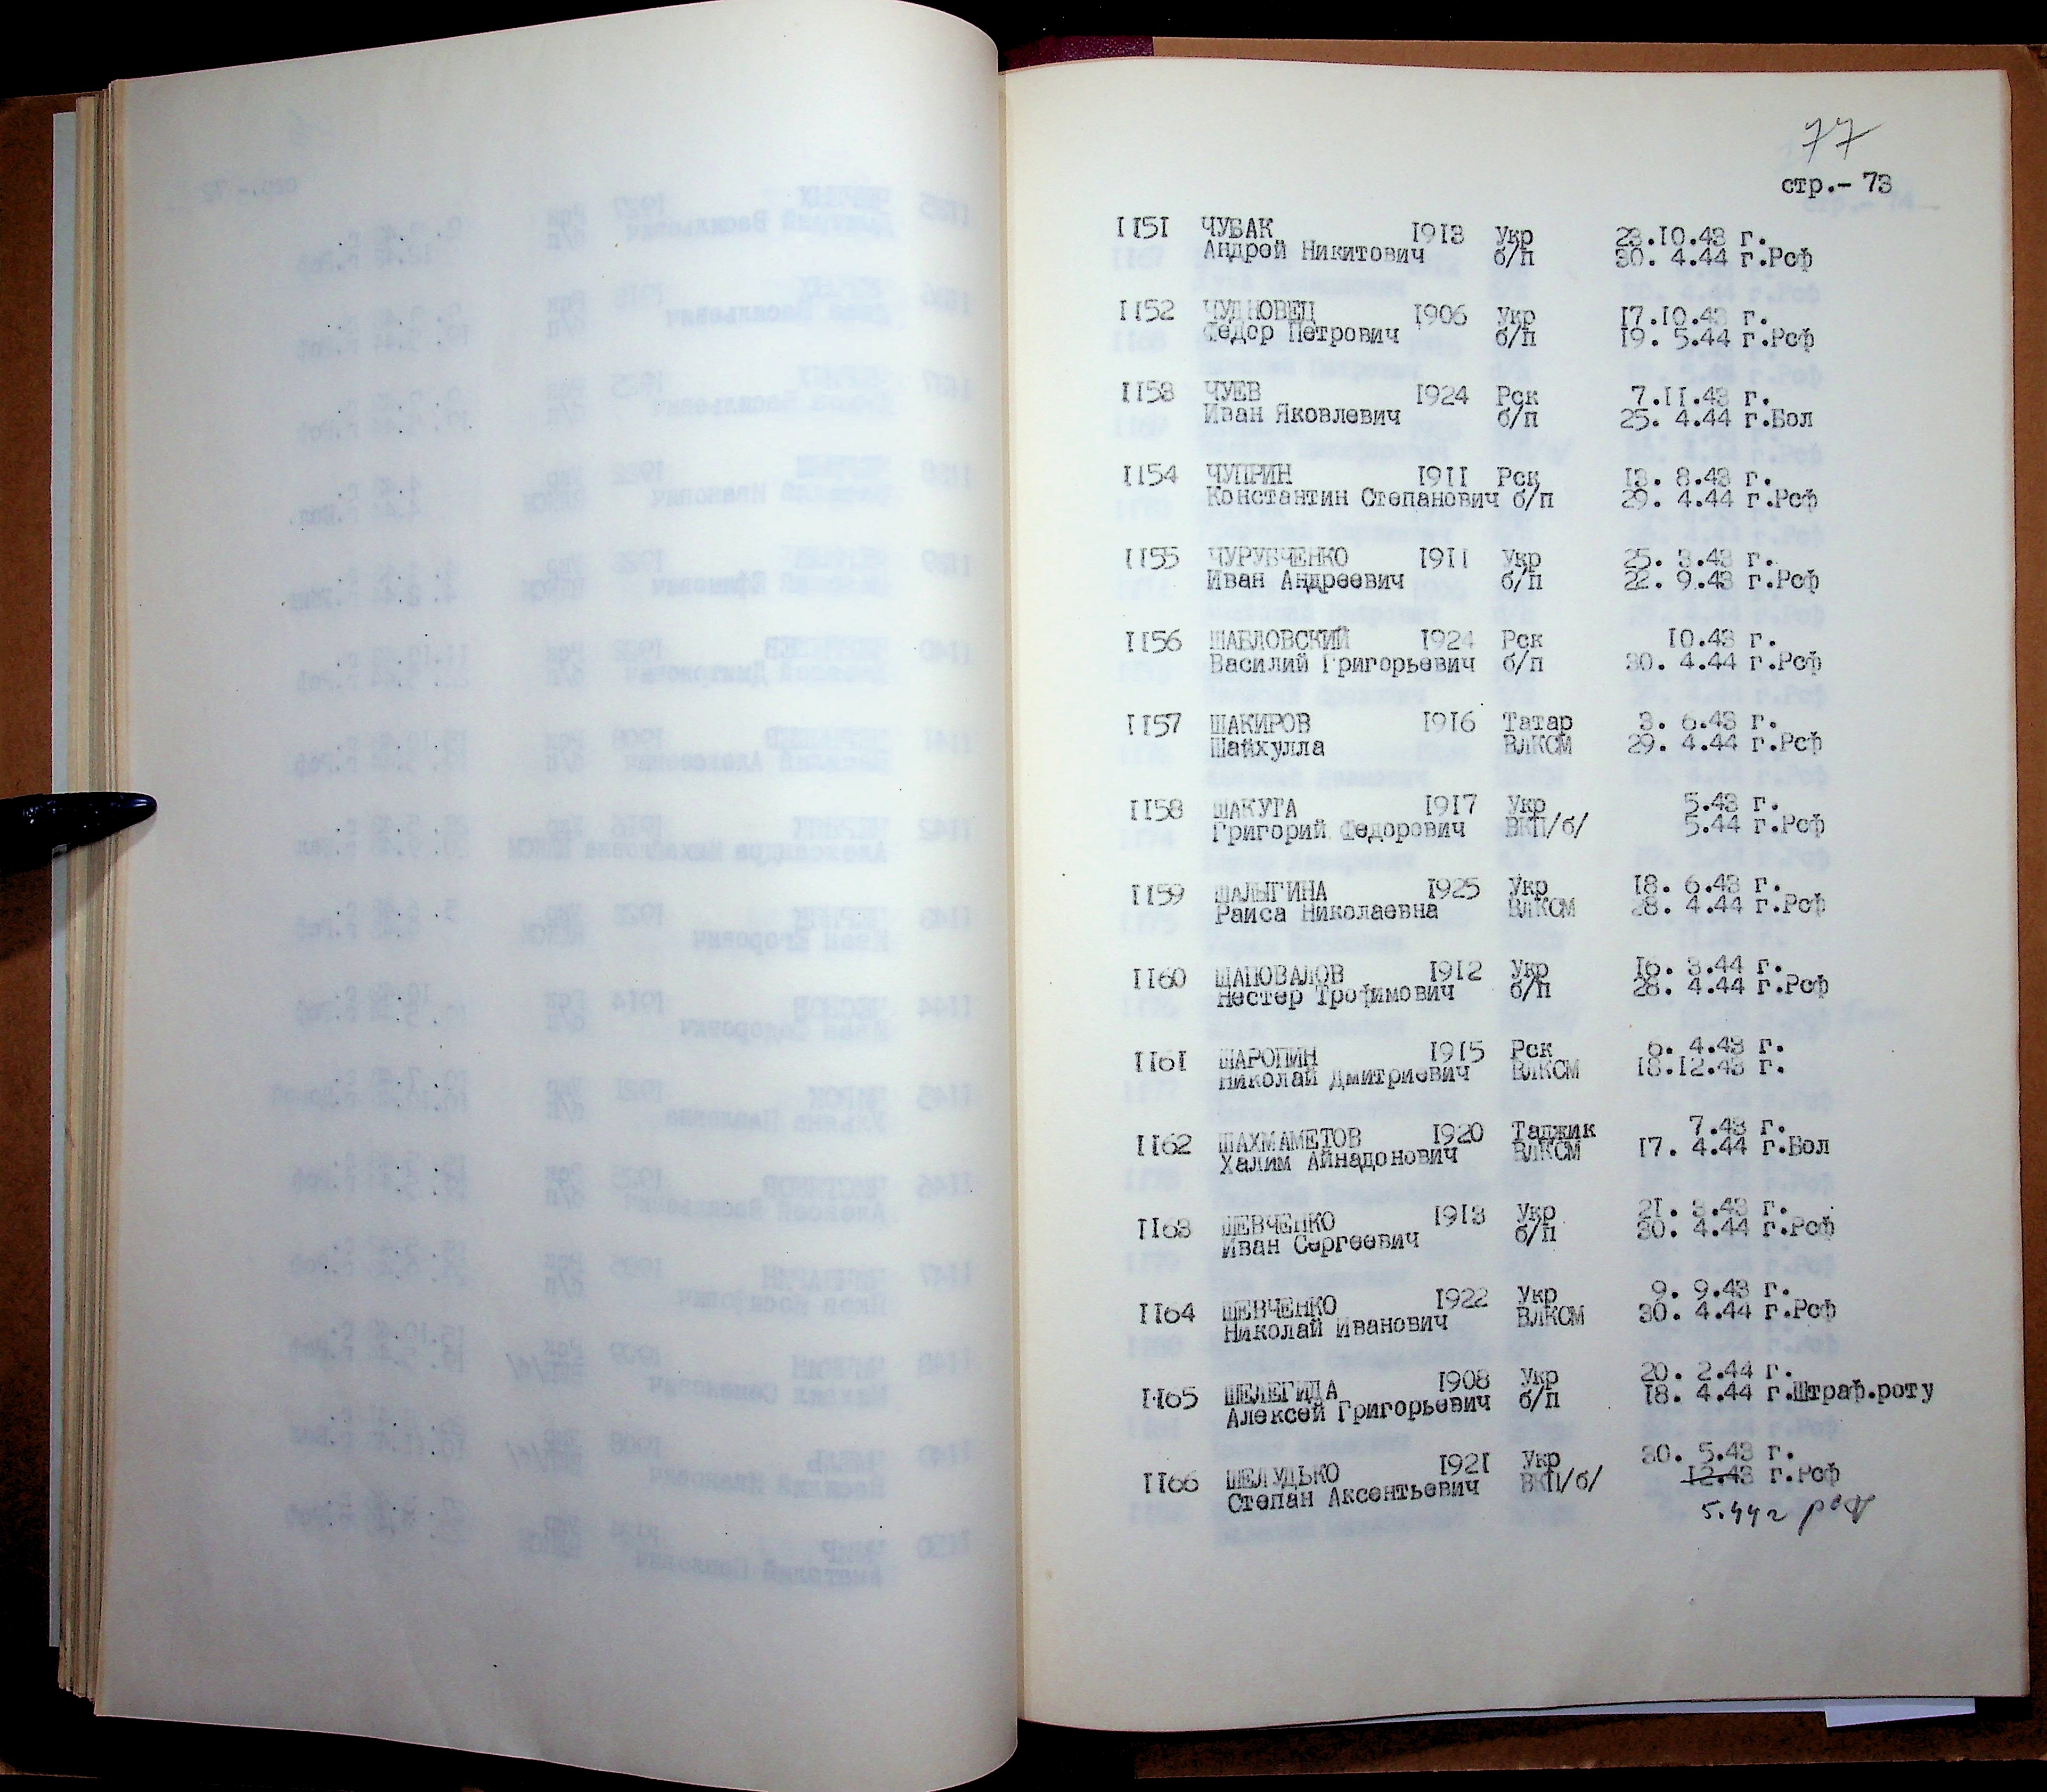 77
стр.- 73
1151 ЧУБАК 1913 Укр 23.10.43 г.
Андрей Никитович б/п 30. 4.44 г.Рсф
1152 ЧУДНОВЕЦ 1906 Укр 17.10.43 г.
Федор Петрович б/п 19. 5.44 г.Рсф
1153 ЧУЕВ 1924 Рск 7.11.43 г.
Иван Яковлевич б/п 25. 4.44 г.Бол
1154 ЧУПРИН 1911 Рск 13. 8.43 г.
Константин Степанович б/п 29. 4.44 г.Рсф
1155 ЧУРУБЧЕНКО 1911 Укр 25. 3.43 г.
Иван Андреевич б/п 22. 9.43 г.Рсф
1156 ШАБЛОВСКИЙ 1924 Рск 10.43 г.
Василий Григорьевич б/п 30. 4.44 г.Рсф
1157 ШАКИРОВ 1916 Татар 3. 6.43 г.
Шайхулла ВЛКСМ 29. 4.44 г.Рсф
1158 ШАКУТА 1917 Укр 5.43 г.
Григорий Федорович ВКП/б/ 5.44 г.Рсф
1159 ШАЛЫГИНА 1925 Укр 18. 6.43 г.
Раиса Николаевна ВЛКСМ 28. 4.44 г.Рсф
1160 ШАПОВАЛОВ 1912 Укр 16. 3.44 г.
Нестер Трофимович б/п 28. 4.44 г.Рсф
1161 ШАРОПИН 1915 Рск 6. 4.43 г.
Николай Дмитриевич ВЛКСМ 18.12.43 г.
1162 ШАХМАМЕТОВ 1920 Таджик 7.43 г.
Халим Айнадонович ВЛКСМ 17. 4.44 г.Бол
1163 ШЕВЧЕНКО 1913 Укр 21. 3.43 г.
Иван Сергеевич б/п 30. 4.44 г.Рсф
1164 ШЕВЧЕНКО 1922 Укр 9. 9.43 г.
Николай Иванович ВЛКСМ 30. 4.44 г.Рсф
1165 ШЕЛЕГИДА 1908 Укр 20. 2.44 г.
Алексей Григорьевич б/п 18. 4.44 г.Штраф.роту
1166 ШЕЛУДЬКО 1921 Укр 30. 5.43 г.
Степан Аксентьевич ВКП/б/ 12.43 г.Рсф
5.44г рсф